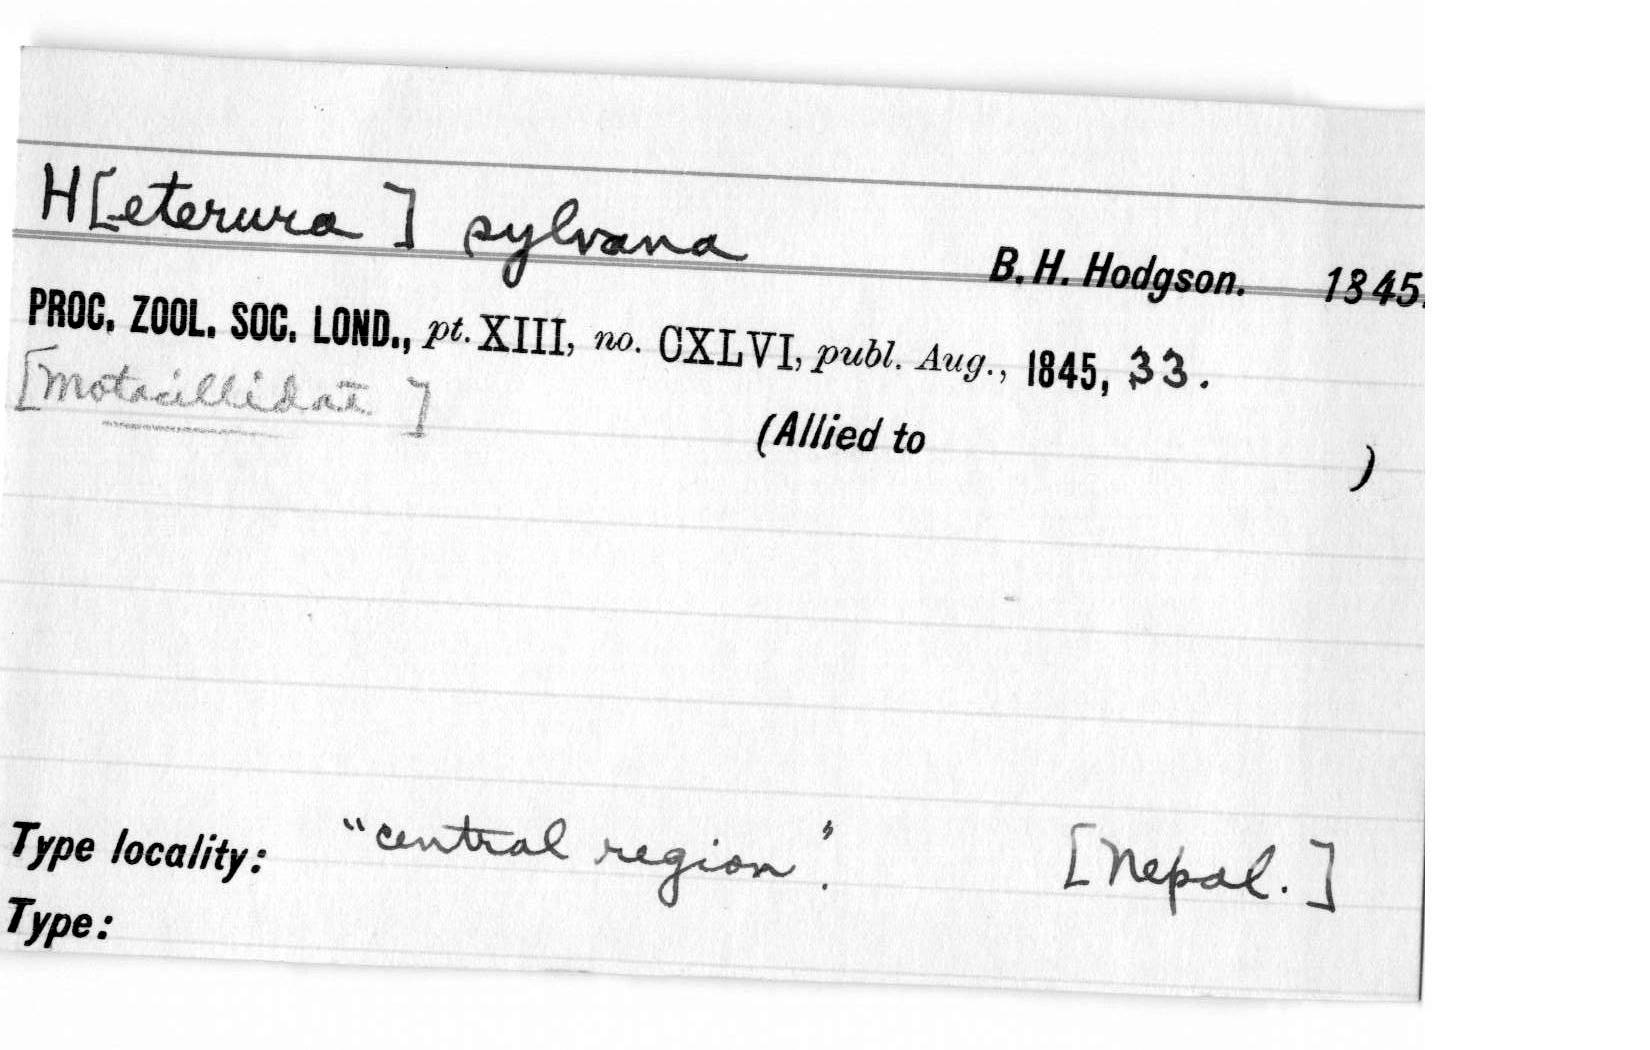 H[eterura] sylvana B. H. Hodgson. 1845.
PROC. ZOOL. SOC. LOND., pt. XIII, no. CXLVI, publ. Aug., 1845, 33.
[Motacillidae]
(Allied to )
Type locality: "central region". [Nepal.]
Type: